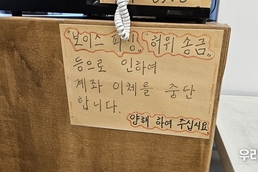 보이스 피싱, 허위 송금
등으로 인하여
계좌 이체를 중단
합니다.
양해 하여 주십시요
우리